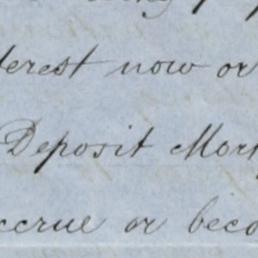 terest now or
Deposit Mort
ccrue or beco